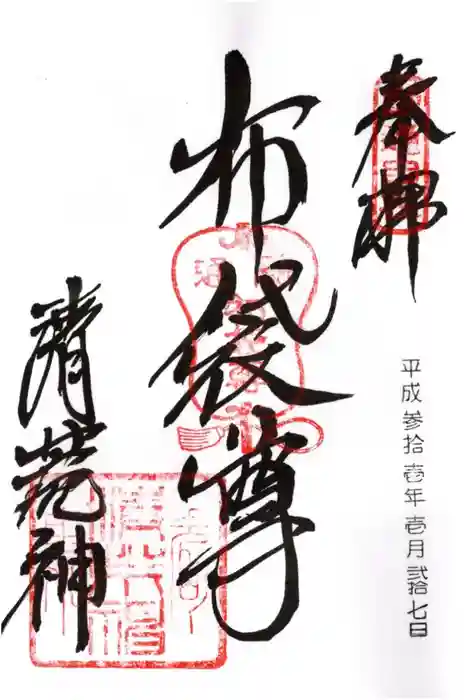 奉拝
平成参拾壱年壱月弐拾七日
布袋尊
清荒神